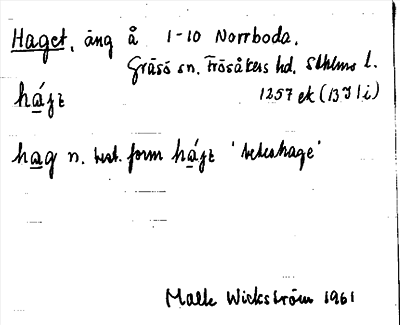 Haget, äng å 1-10 Norrboda,
Gräsö sn. Frösåkers hd. Sthlms l.
háʒɛ 1257 ek (13J1i)
hag n. best. form háʒɛ 'beteshage'
Malle Wickström 1961